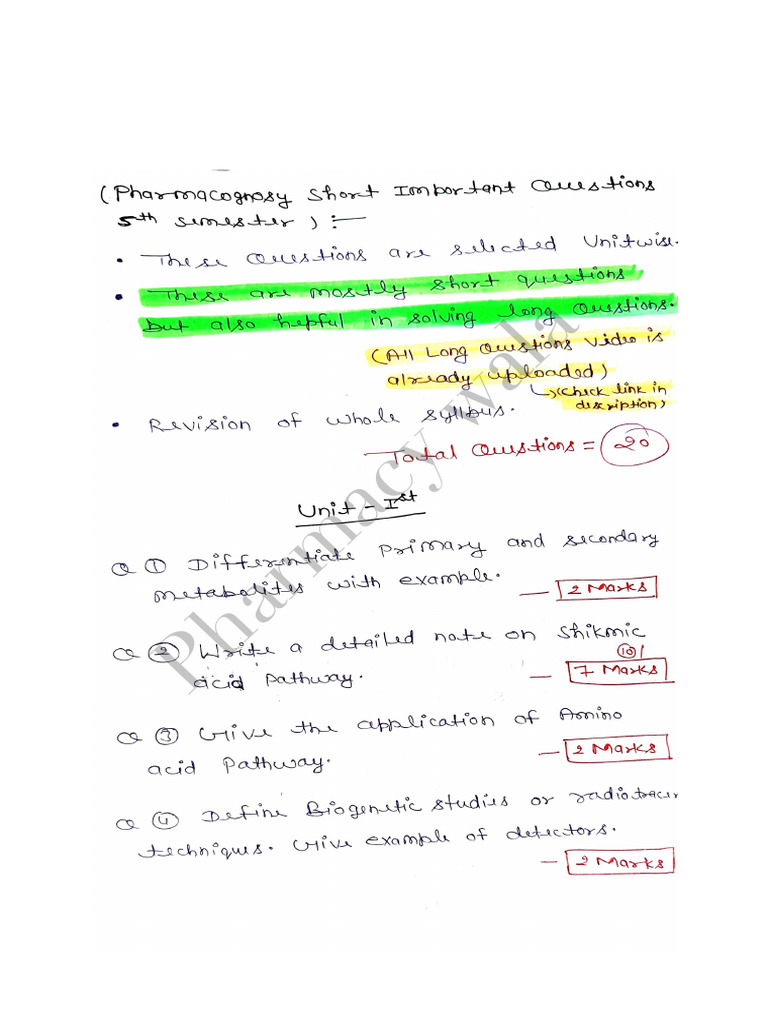 (Pharmacognosy Short Important Questions
5th semester) :—
• These Questions are selected Unitwise.
• These are mostly short questions
but also hepful in solving long Questions.
(All Long Questions Video is
already uploaded)
(check link in
description)
• Revision of whole syllbus.
Total Questions = 20
Unit - Ist
Q ① Differentiate Primary and secondary
metabolites with example.
— 2 Marks
Q ② Write a detailed note on Shikmic
acid Pathway.
— 10/
7 Marks
Q ③ Give the application of Amino
acid Pathway.
— 2 Marks
Q ④ Define Biogenetic studies or radiotracer
techniques. Give example of detectors.
— 2 Marks
Pharmacy wala